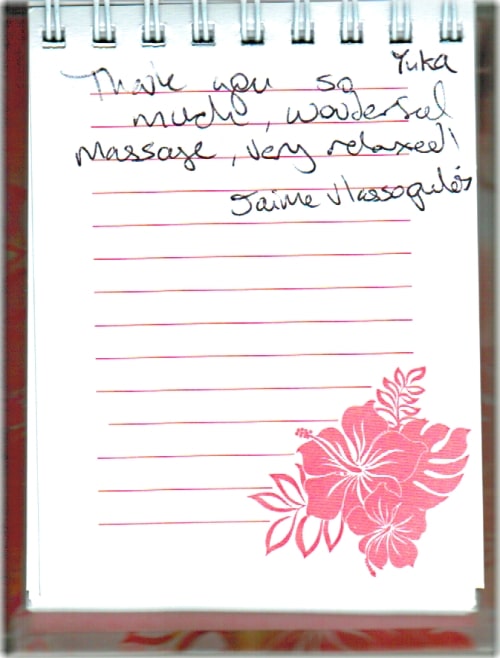 Yuka
Thank you so
much, wonderful
massage, very relaxed!
Jaime Vlassopulos